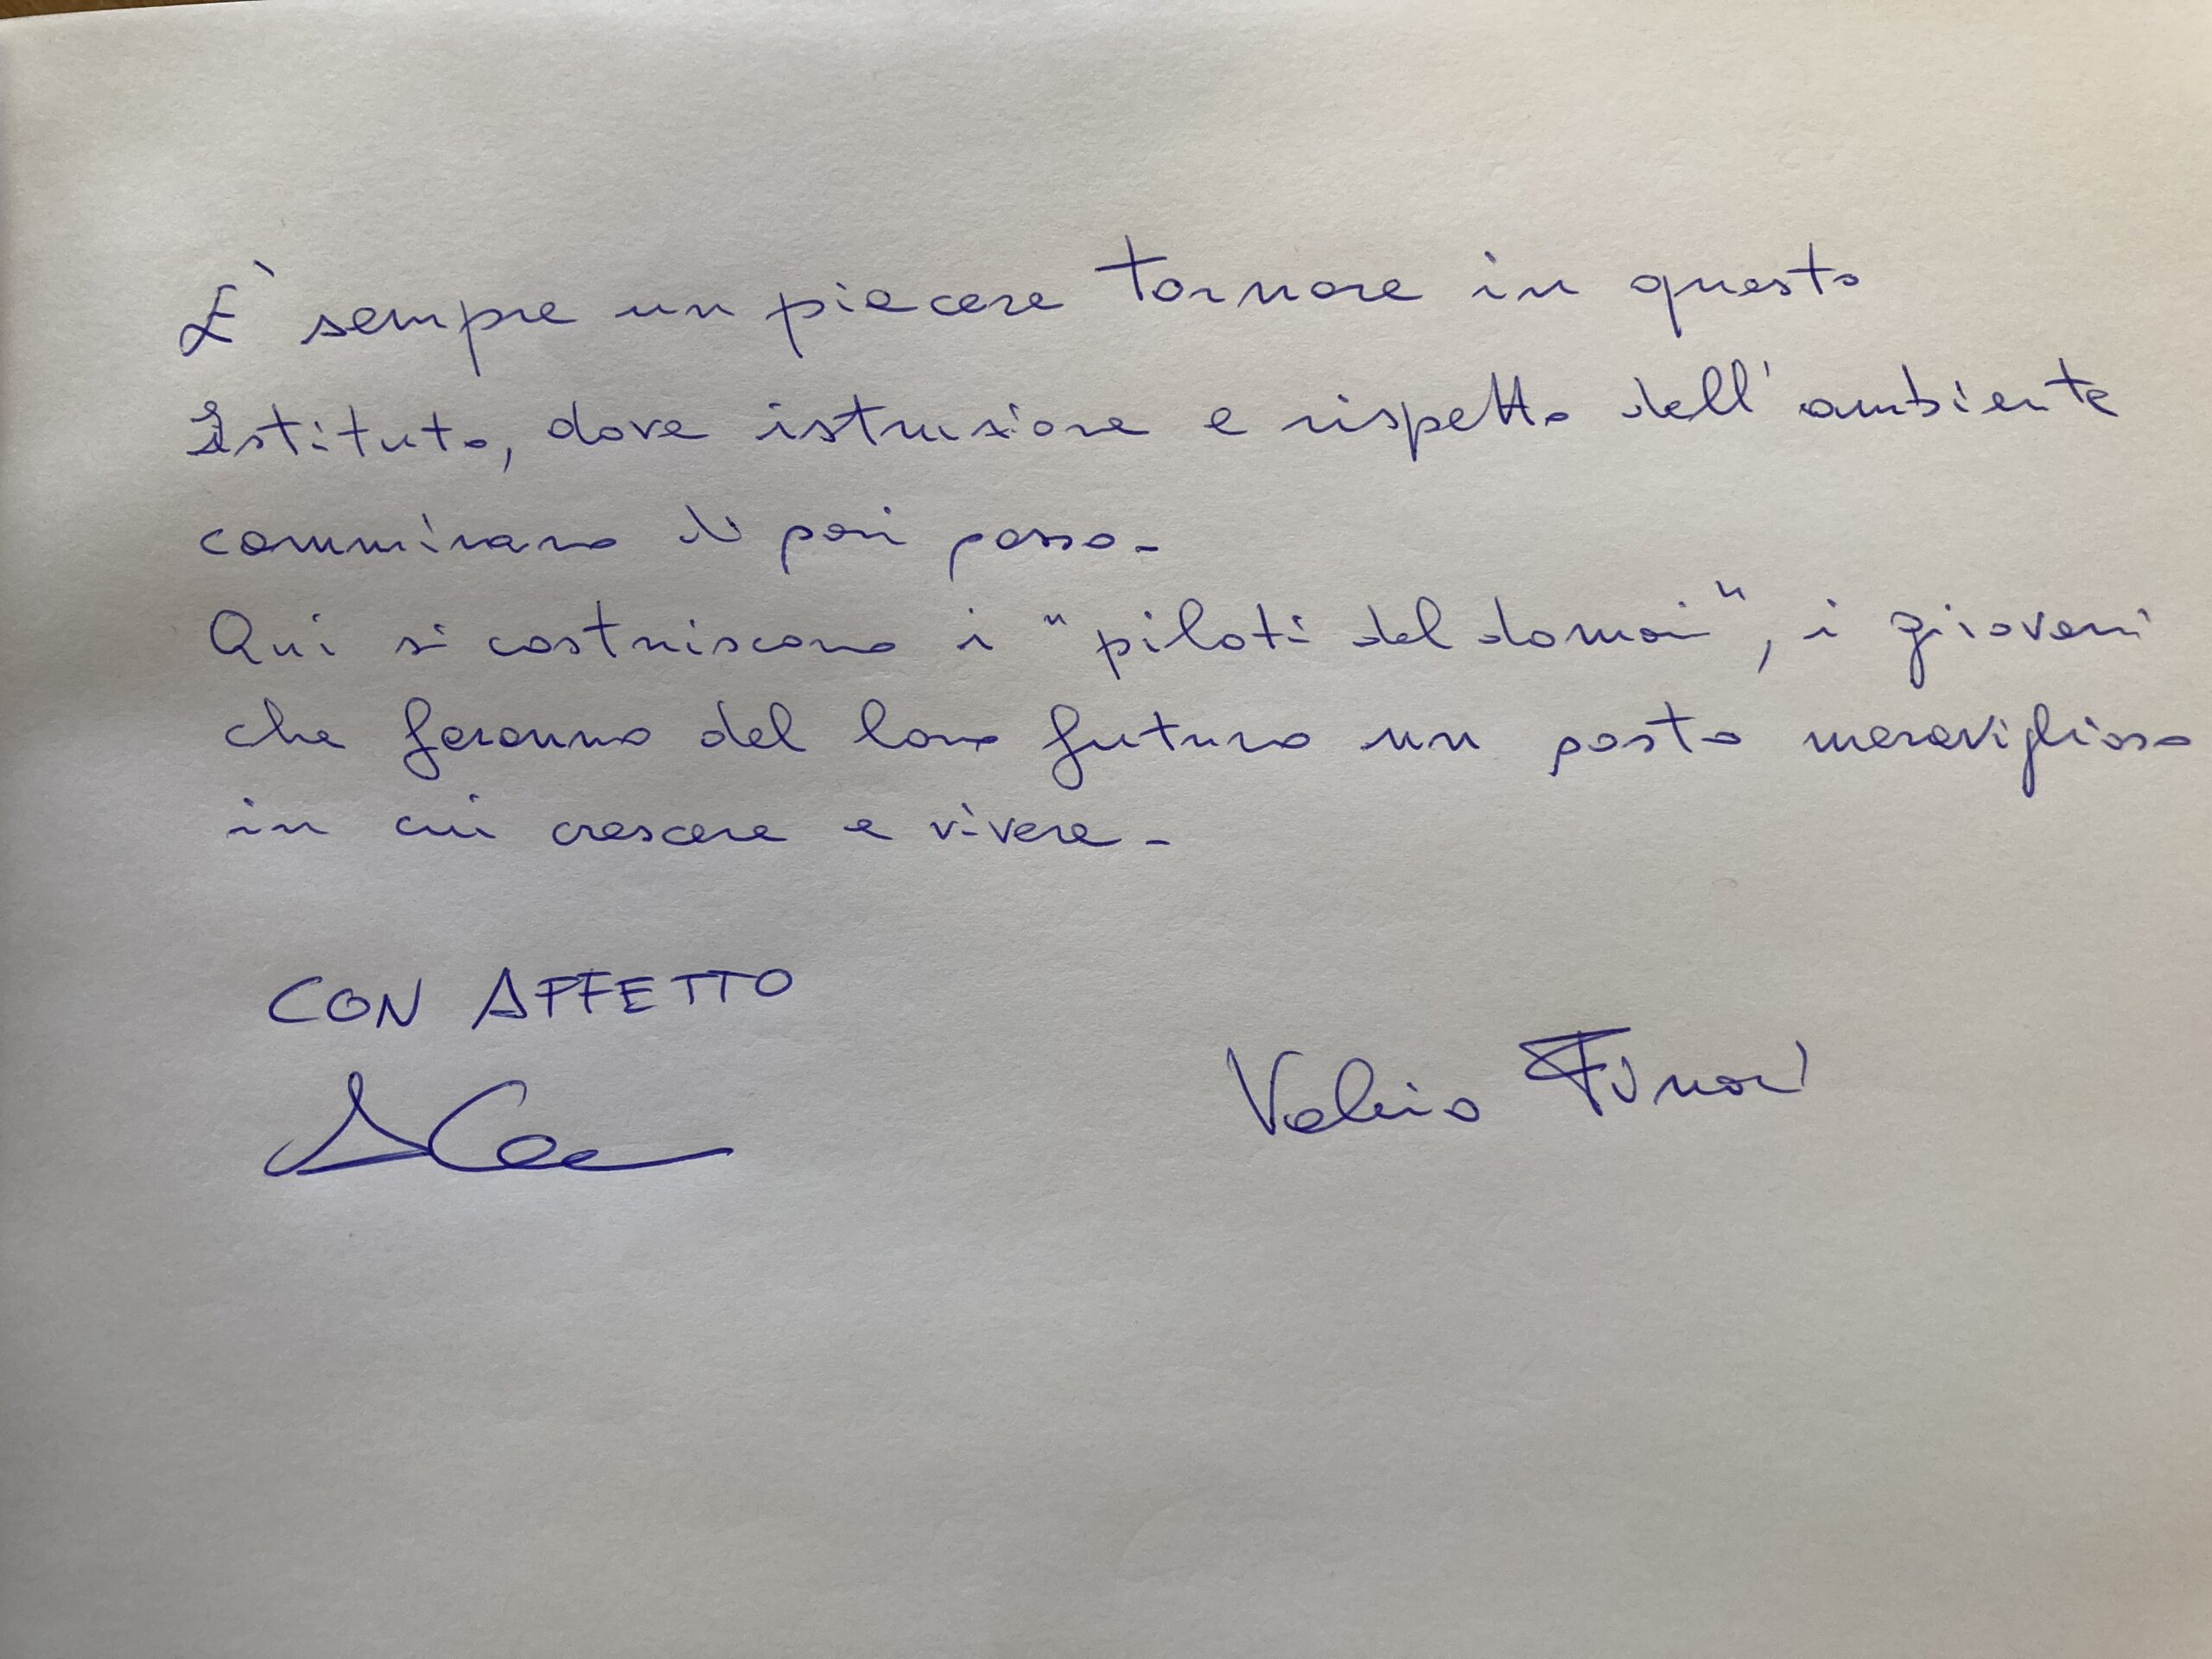 È sempre un piacere tornare in questo
Istituto, dove istruzione e rispetto dell'ambiente
camminano di pari passo-
Qui si costruiscono i "piloti del domani", i giovani
che faranno del loro futuro un posto meraviglioso
in cui crescere e vivere-
CON AFFETTO
Valerio